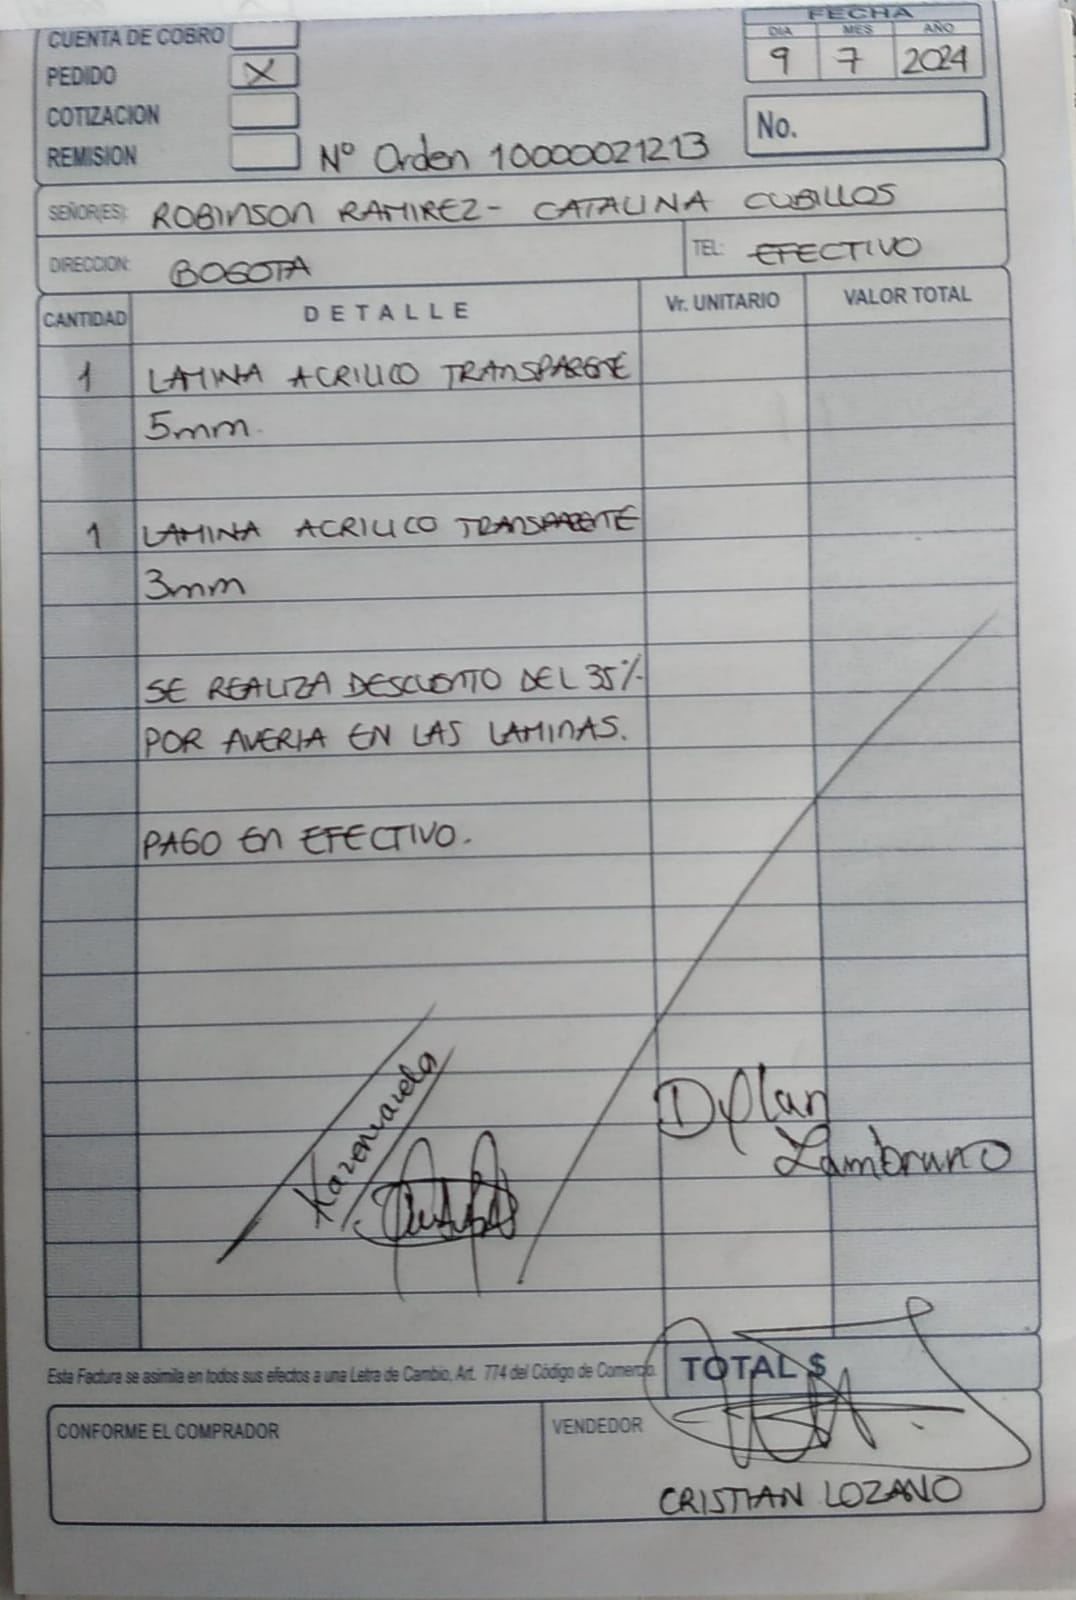 FECHA
CUENTA DE COBRO
DIA MES AÑO
PEDIDO X
9 7 2024
COTIZACION
No.
REMISION
Nº Orden 10000021213
SEÑOR(ES): ROBINSON RAMIREZ- CATALINA CUBILLOS
DIRECCION: BOGOTA
TEL: EFECTIVO
CANTIDAD DETALLE Vr. UNITARIO VALOR TOTAL
1 LAMINA ACRILICO TRANSPARENTE
5mm.
1 LAMINA ACRILICO TRANSPARENTE
3mm
SE REALIZA DESCUENTO DEL 35%
POR AVERIA EN LAS LAMINAS.
PAGO EN EFECTIVO.
Karenvarela
Dylan
Lambruno
Esta Factura se asimila en todos sus efectos a una Letra de Cambio, Art. 774 del Código de Comercio.
TOTAL $
CONFORME EL COMPRADOR
VENDEDOR
CRISTIAN LOZANO